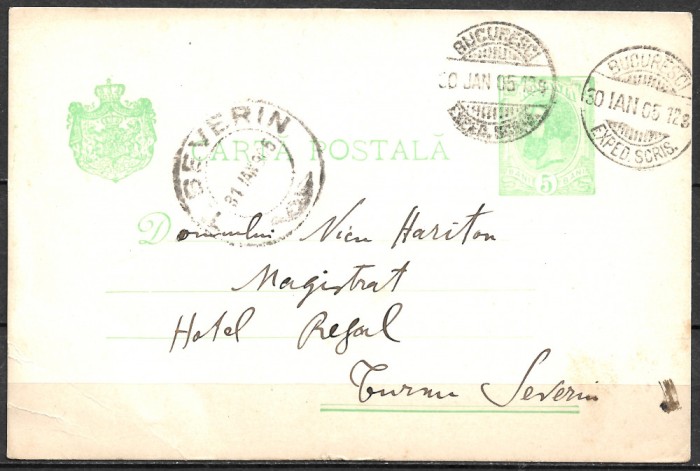 BUCURESCI
30 JAN 05 12 8
BUCURESCI
30 IAN 05 12 8
EXPED SCRIS.
SEVERIN
31 IAN 05
CARTA POSTALĂ
BANI 5 BANI
Domnului Nicu Hariton
Magistrat
Hotel Regal
Turnu Severin